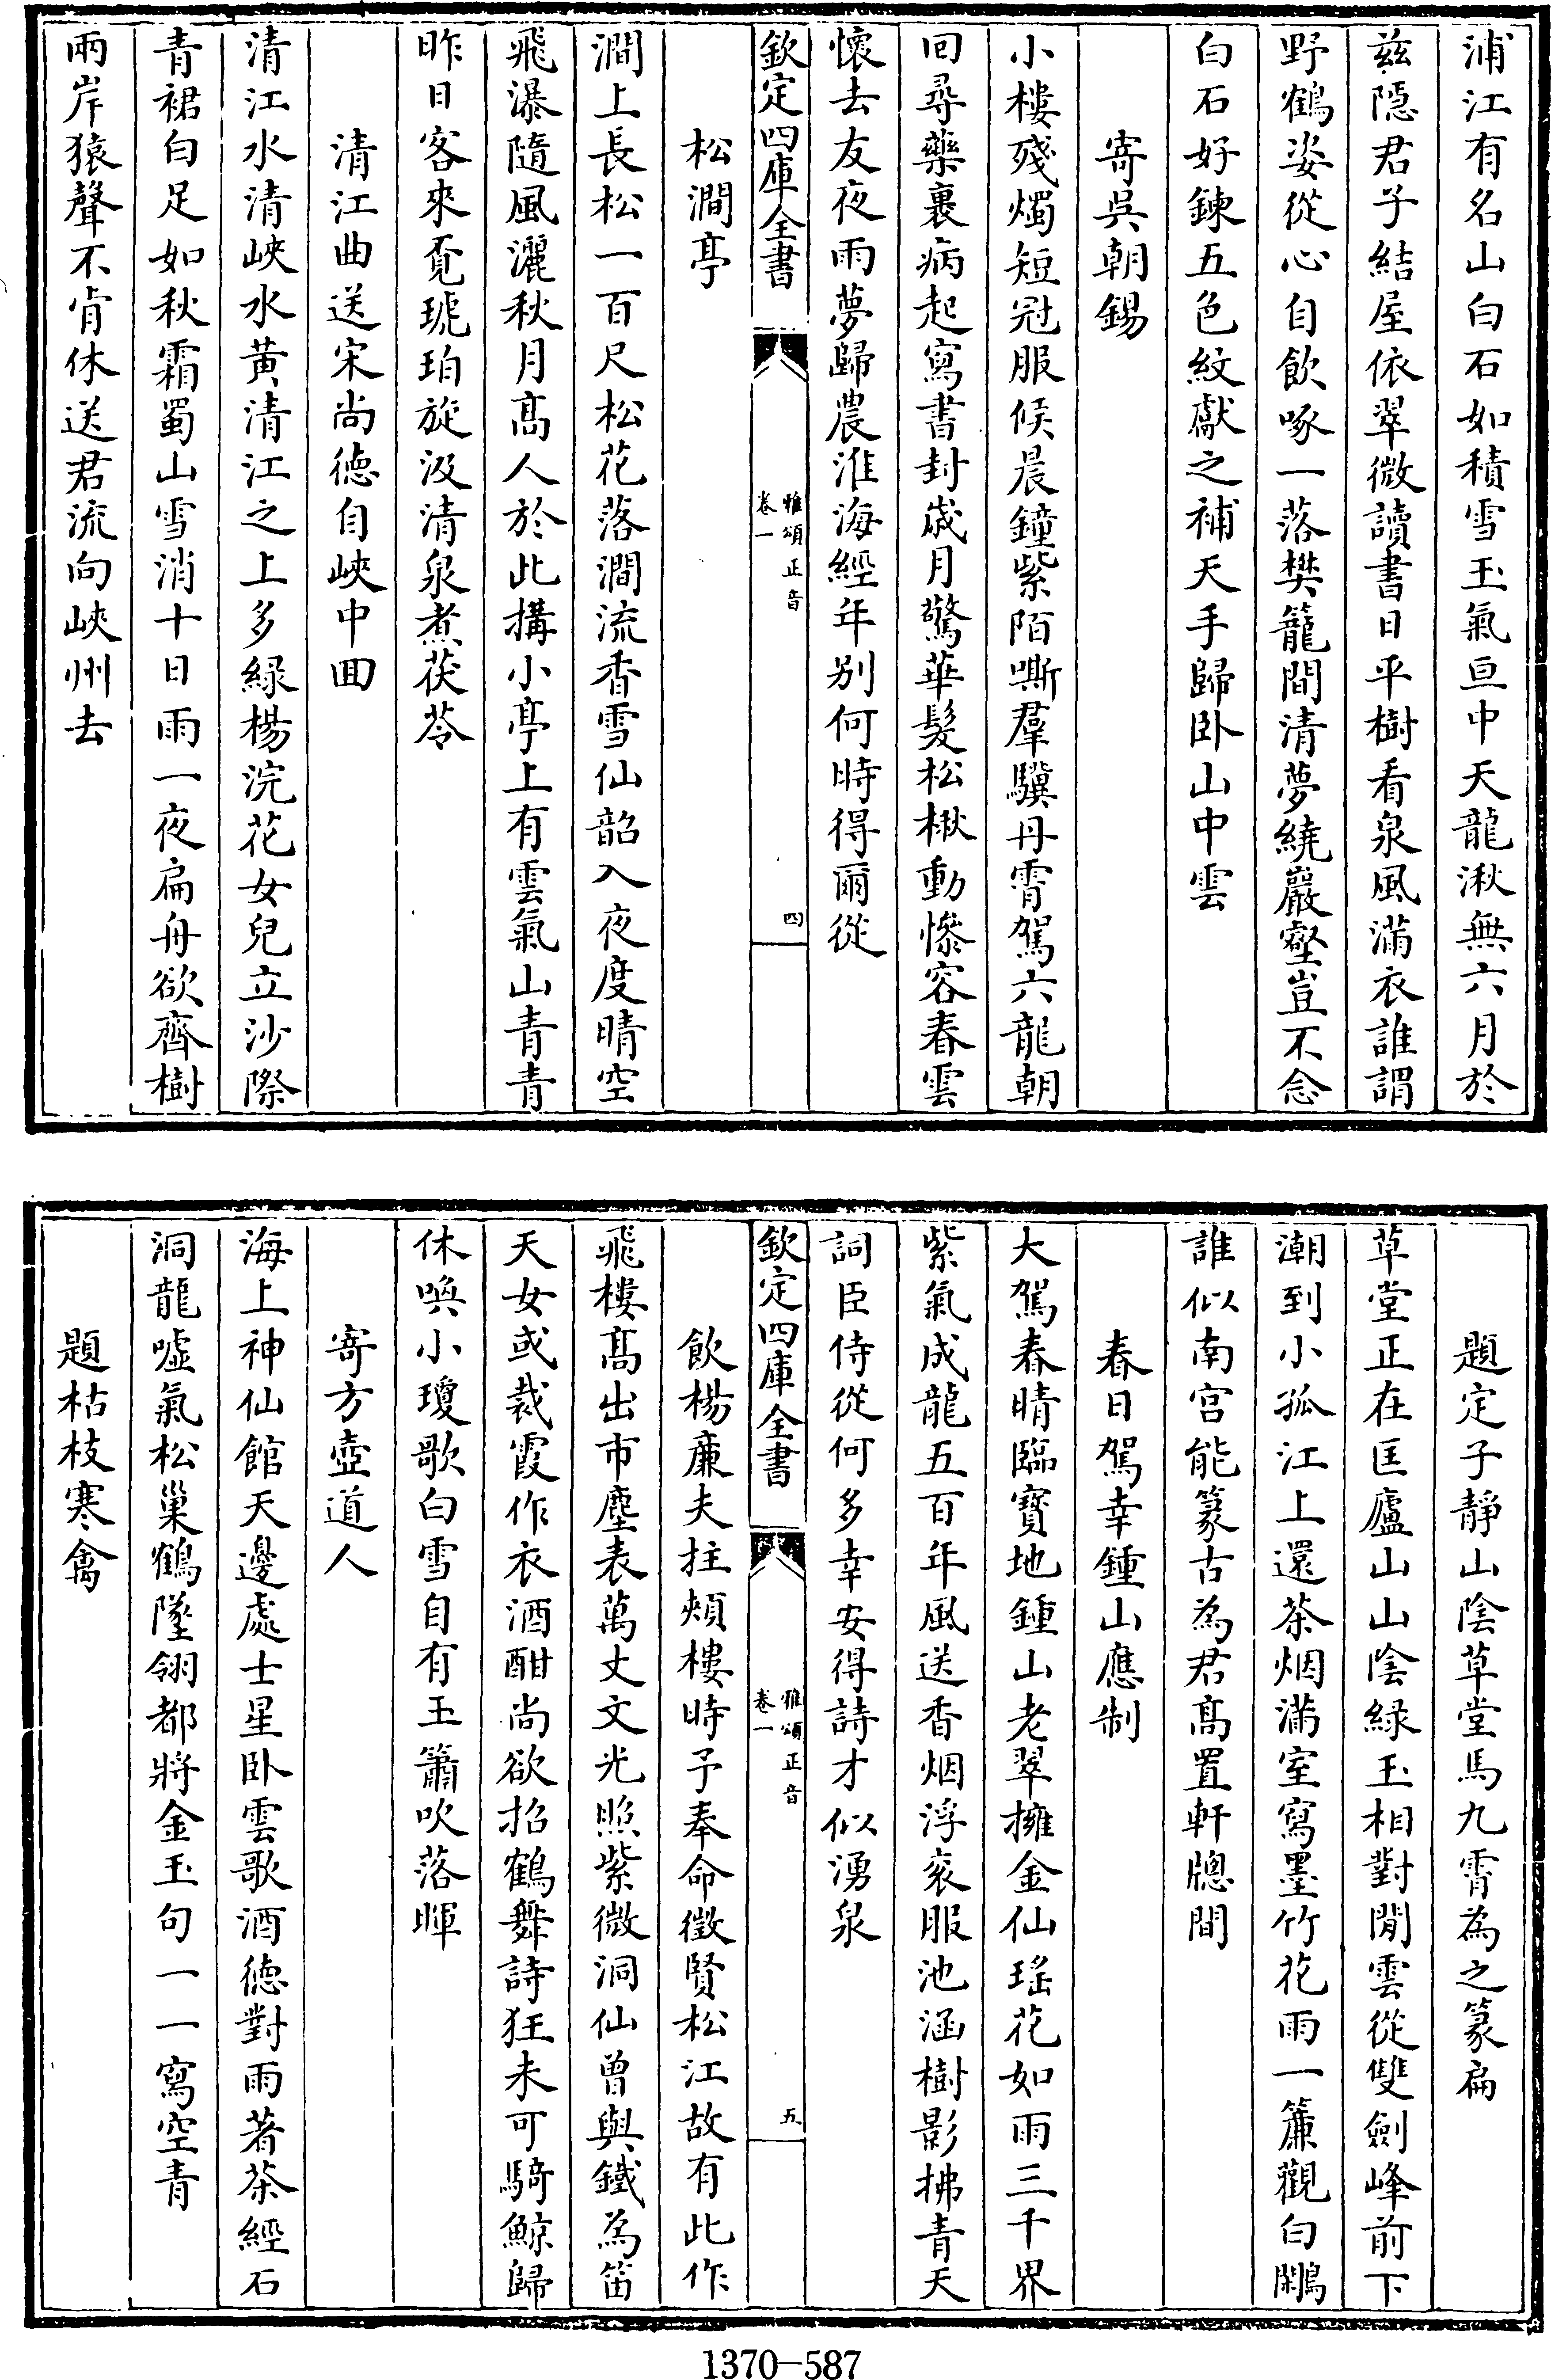 浦江有名山白石如積雪玉氣亘中天龍湫無六月於
兹隠君子結屋依翠微讀書日平樹看泉風滿衣誰謂
野鶴姿從心自飲啄一落樊籠間清夢繞巖壑豈不念
白石好鍊五色紋獻之補天手歸卧山中雲
寄吳朝錫
小樓殘燭短冠服候晨鐘紫陌嘶羣驥丹霄駕六龍朝
回尋藥裹病起寫書封歲月驚華髮松楸動慘容春雲
懷去友夜雨夢歸農淮海經年别何時得爾從
欽定四庫全書
雅頌正音
卷一
四
松澗亭
澗上長松一百尺松花落澗流香雪仙韶入夜度晴空
飛瀑隨風灑秋月髙人於此搆小亭上有雲氣山青青
昨日客來覔琥珀旋汲清泉煮茯苓
清江曲送宋尚德自峽中囬
清江水清峽水黄清江之上多緑楊浣花女兒立沙際
青裙白足如秋霜蜀山雪消十日雨一夜扁舟欲齊樹
兩岸猿聲不肯休送君流向峽州去
題定子靜山隂草堂馬九霄為之篆扁
草堂正在匡廬山山隂緑玉相對閒雲從雙劍峰前下
潮到小孤江上還茶烟滿室寫墨竹花雨一簾觀白鷴
誰似南宫能篆古為君髙置軒牕間
春日駕幸鍾山應制
大駕春晴臨寳地鍾山老翠擁金仙瑤花如雨三千界
紫氣成龍五百年風送香烟浮衮服池涵樹影拂青天
詞臣侍從何多幸安得詩才似湧泉
欽定四庫全書
雅頌正音
卷一
五
飲楊廉夫拄頰樓時予奉命徵賢松江故有此作
飛樓髙出市塵表萬丈文光照紫微洞仙曾與鐵為笛
天女或裁霞作衣酒酣尚欲招鶴舞詩狂未可騎鯨歸
休喚小瓊歌白雪自有玉簫吹落暉
寄方壺道人
海上神仙館天邊處士星卧雲歌酒德對雨著茶經石
洞龍嘘氣松巢鶴墜翎都將金玉句一一寫空青
題枯枝寒禽
1370—587